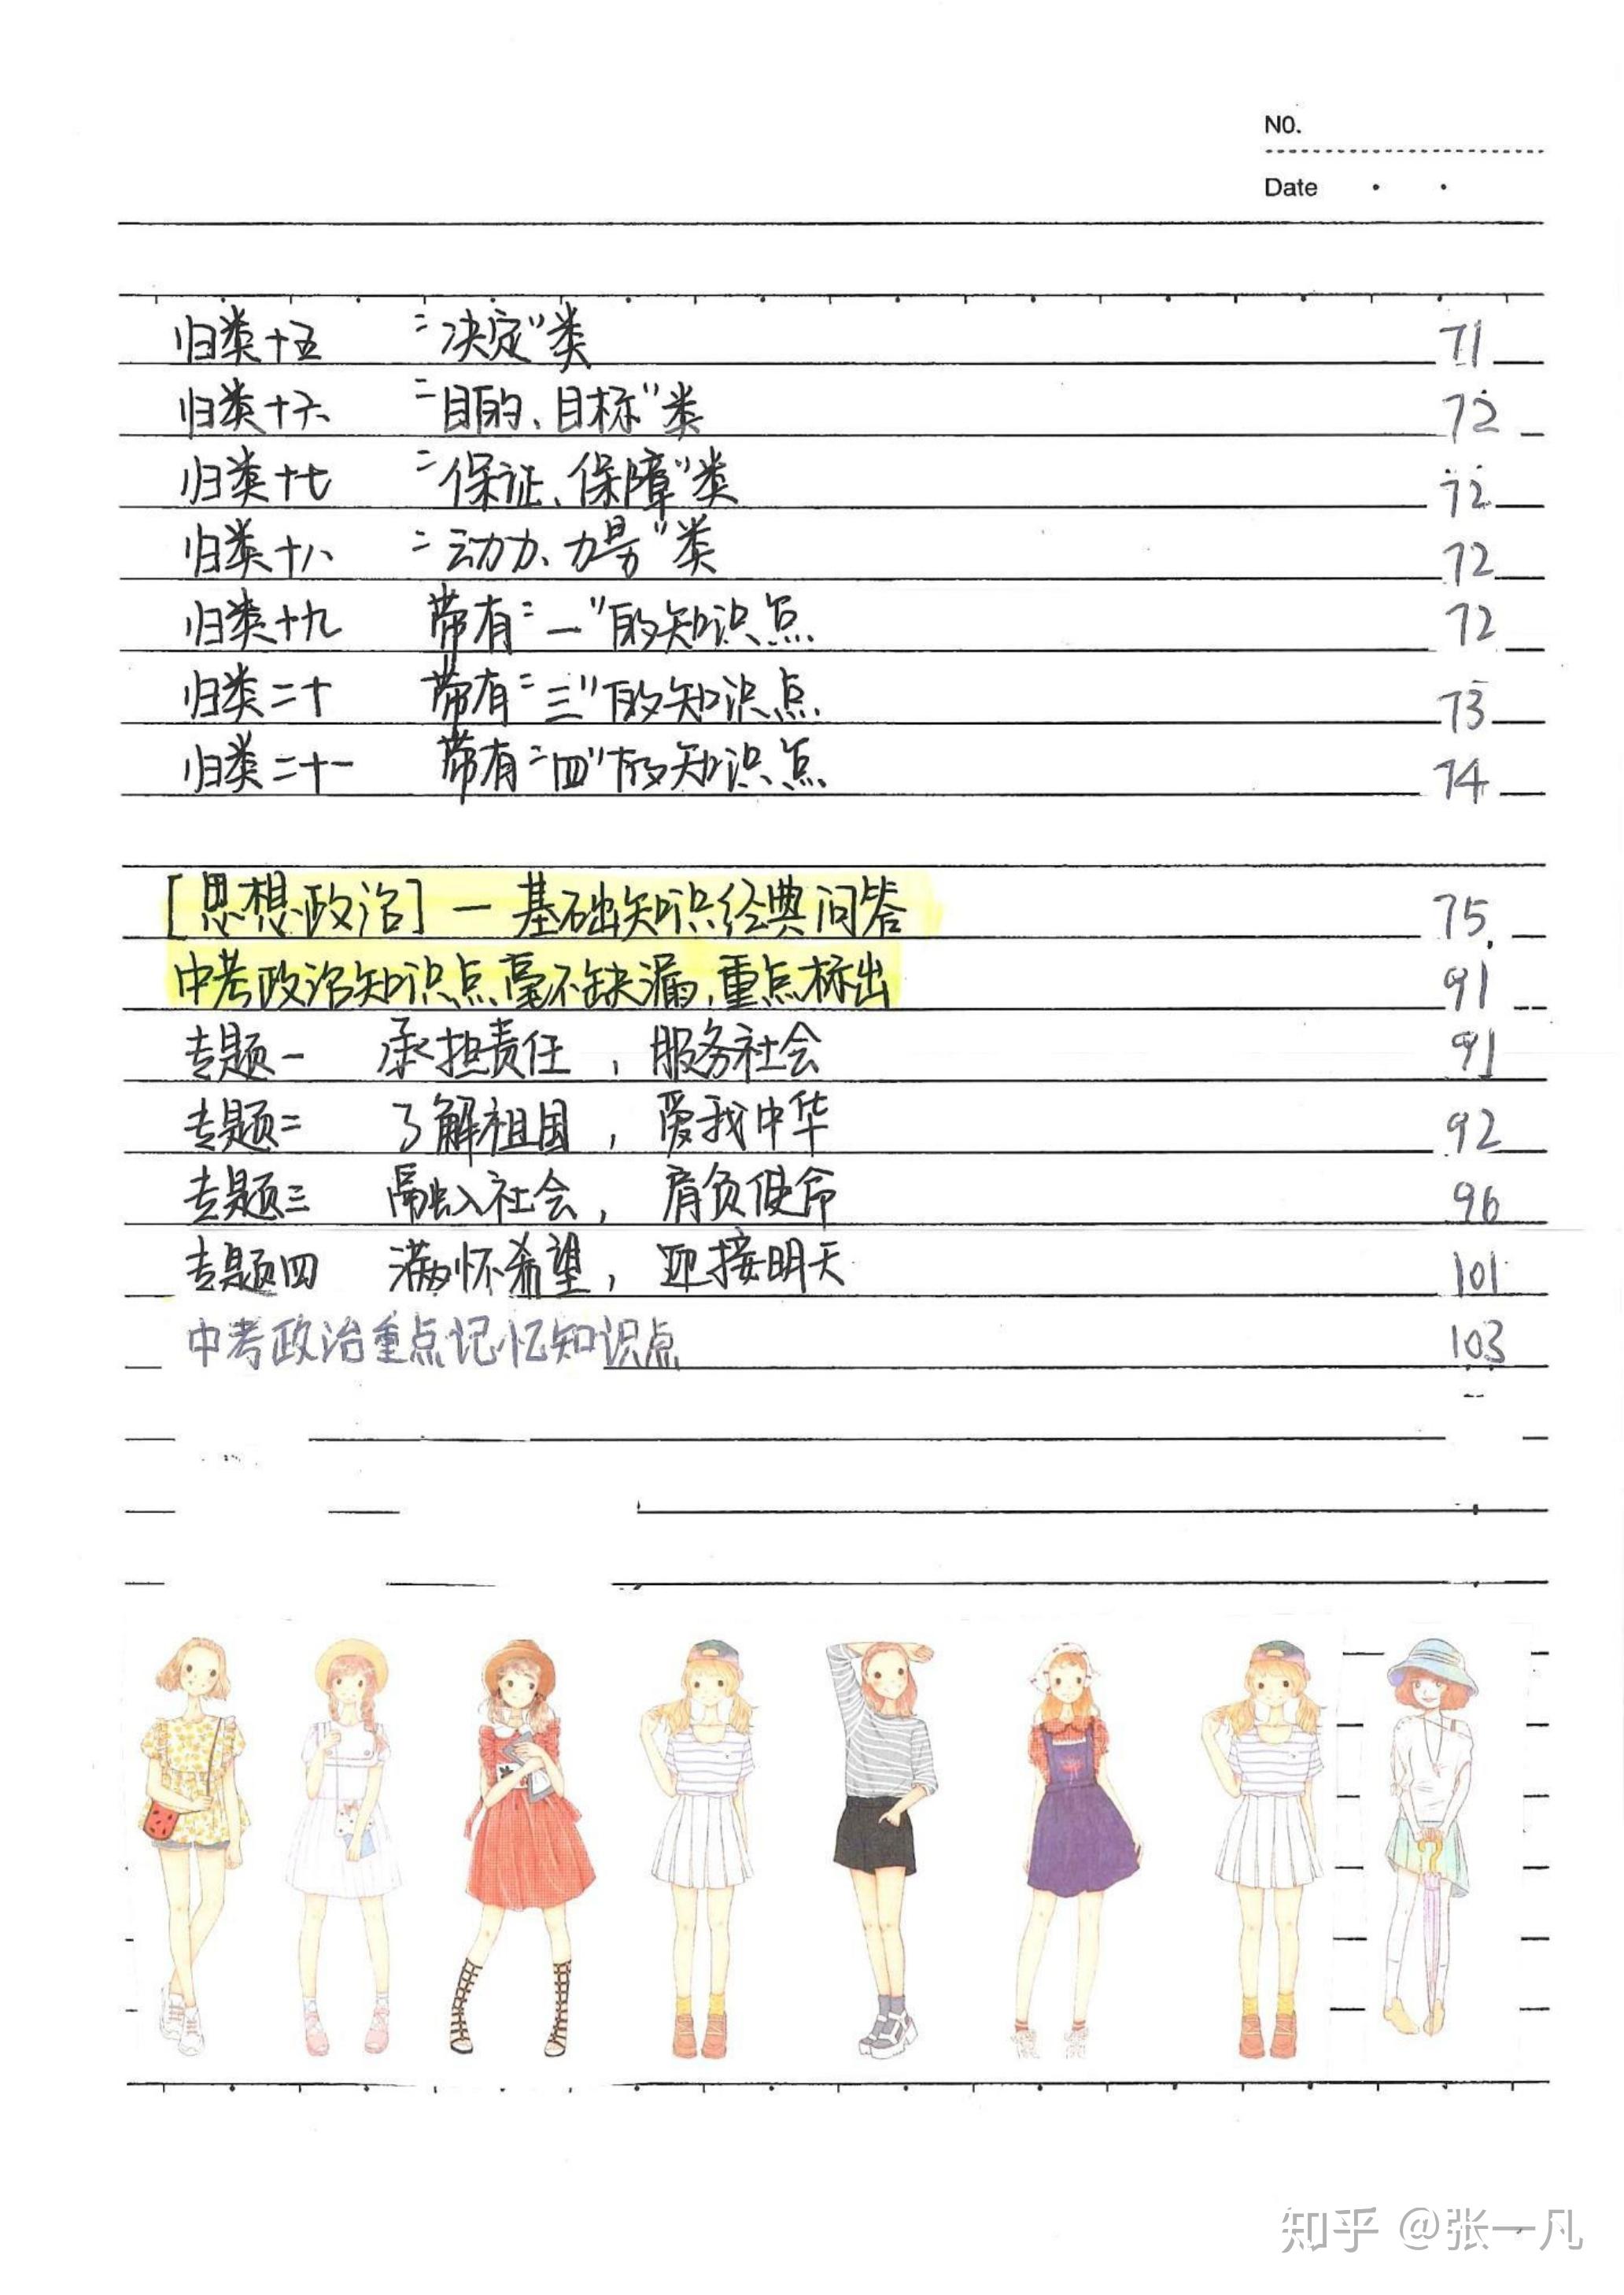 NO.
Date
归类十五 “决定”类 71
归类十六 “目的、目标”类 72
归类十七 “保证、保障”类 72
归类十八 “动力、力量”类 72
归类十九 带有“一”的知识点 72
归类二十 带有“三”的知识点 73
归类二十一 带有“四”的知识点 74
[思想政治]一基础知识经典问答 75
中考政治知识点毫不缺漏,重点标出 91
专题一 承担责任,服务社会 91
专题二 了解祖国,爱我中华 92
专题三 融入社会,肩负使命 96
专题四 满怀希望,迎接明天 101
中考政治重点记忆知识点 103
知乎 @张一凡